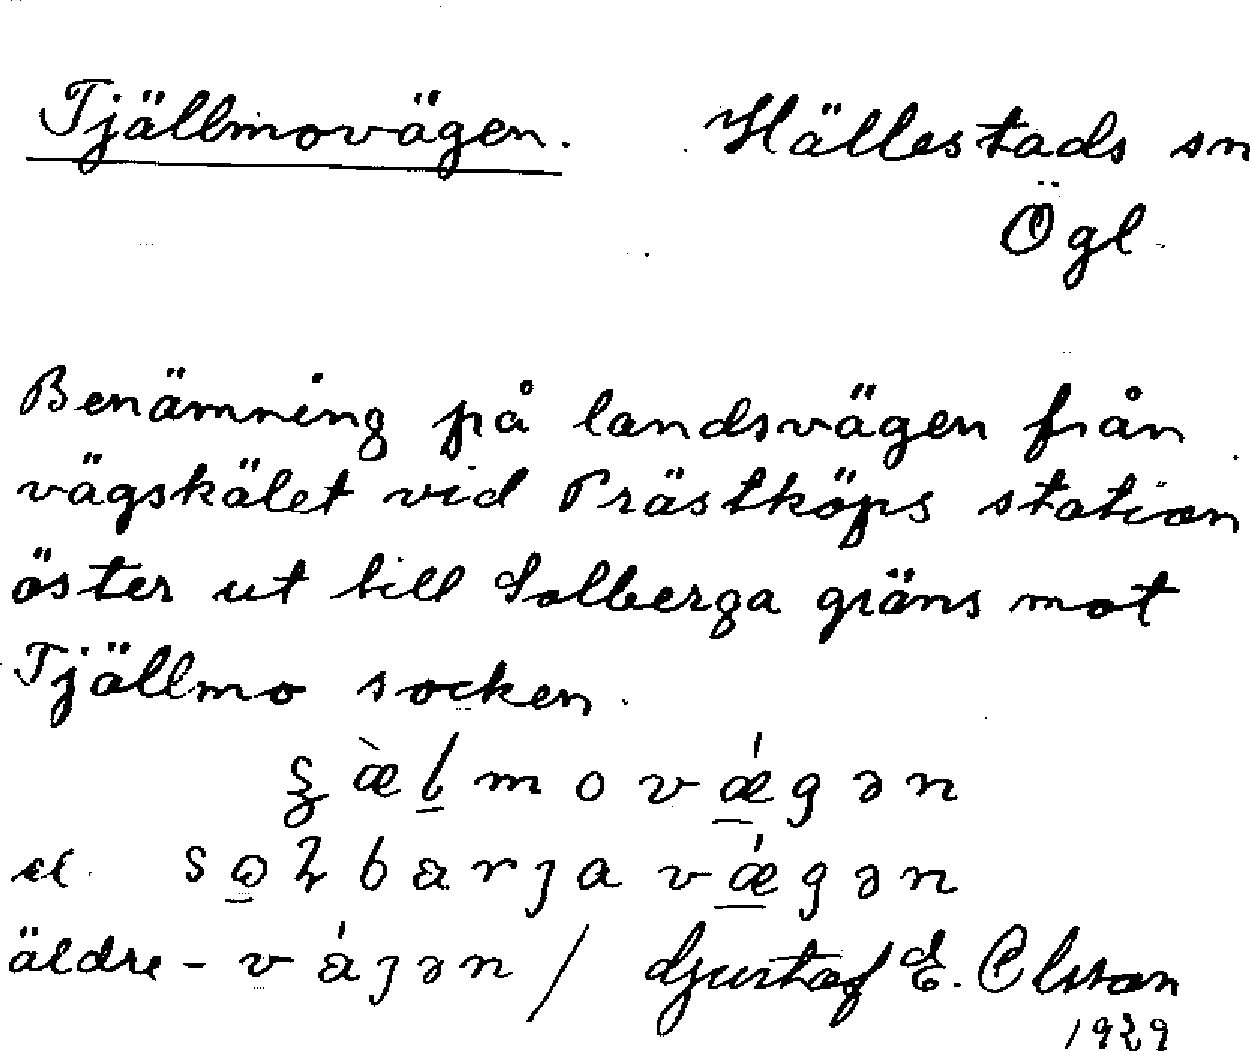 Tjällmovägen. Hällestads sn
Ögl.
Benämning på landsvägen från
vägskälet vid Prästköps station
öster ut till Solberga gräns mot
Tjällmo socken.
movǽgən
el.
äldre - / Gustaf E. Olsson
1929